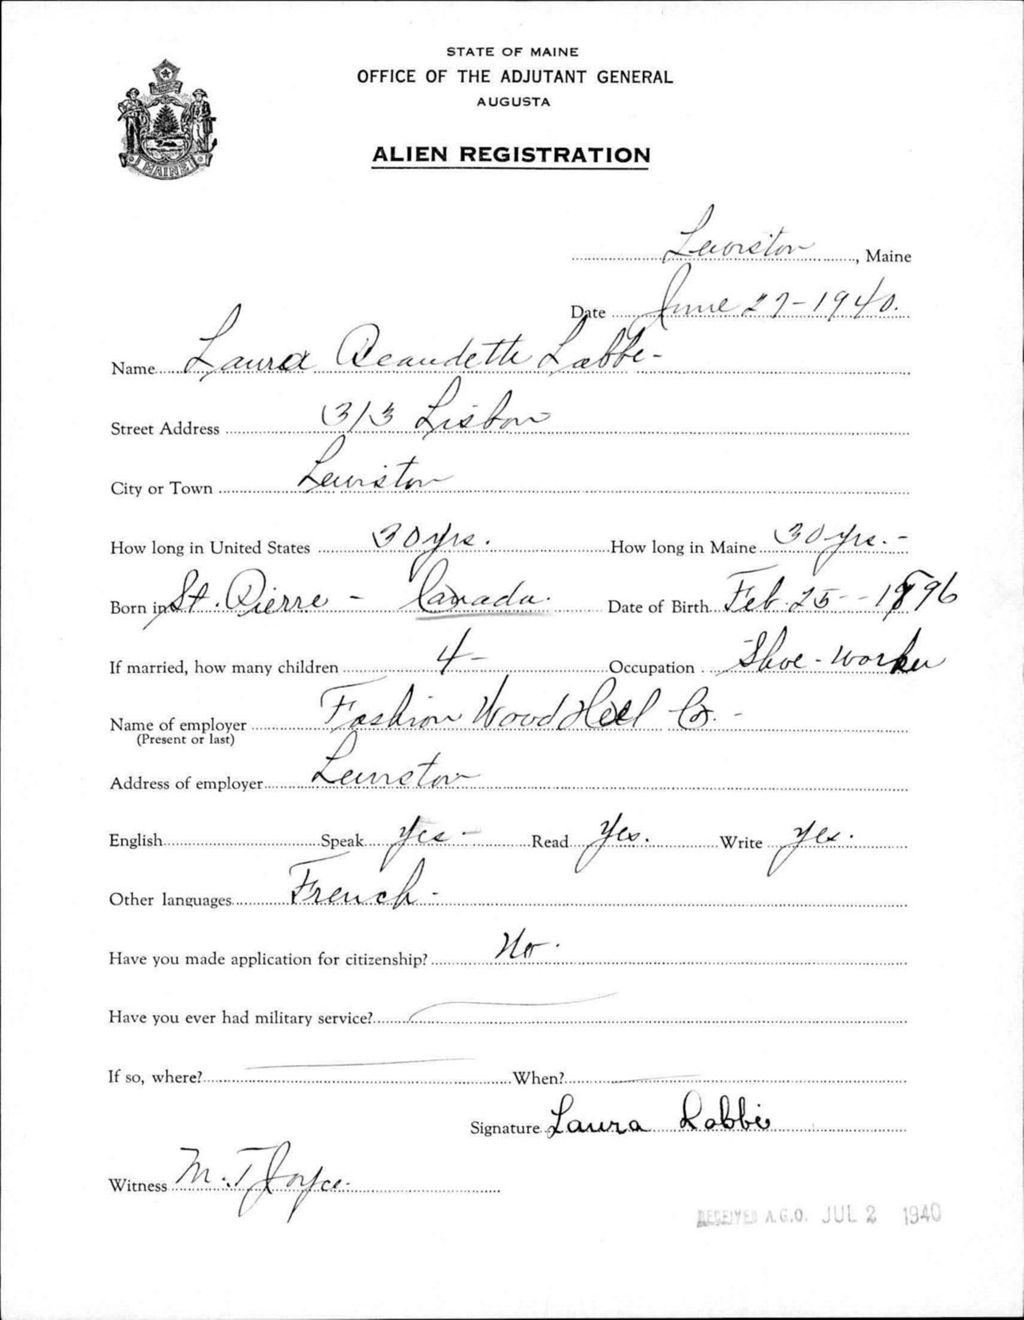 STATE OF MAINE
OFFICE OF THE ADJUTANT GENERAL
AUGUSTA
ALIEN REGISTRATION
MAINE
Lewiston, Maine
Date June 27-1940.
Name Laura Beaudette Labbe-
Street Address 313 Lisbon
City or Town Lewiston
How long in United States 30 yrs. How long in Maine 30 yrs. -
Born in St. Pierre - Canada. Date of Birth Feb. 25 - 1896
If married, how many children 4 - Occupation Shoe-worker
Name of employer Fashion Wood Heel Co. -
(Present or last)
Address of employer Lewiston
English Speak Yes - Read Yes. Write Yes.
Other languages French -
Have you made application for citizenship? No.
Have you ever had military service?
If so, where? When?
Signature Laura Labbé
Witness M. T. Joyce.
RECEIVED A.G.O. JUL 2 1940